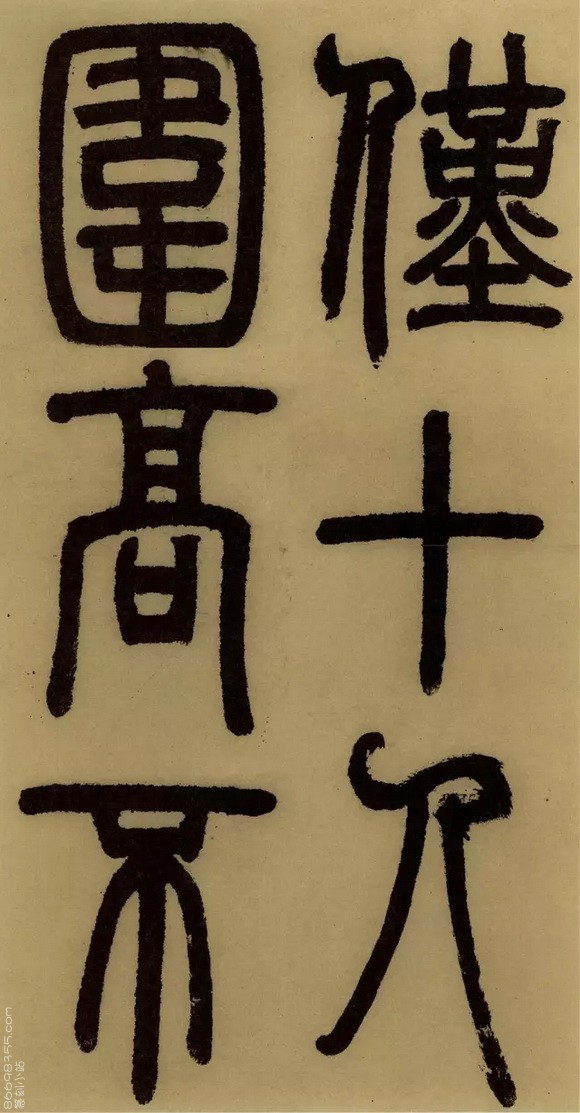 僅十人
圍高不
篆刻小站
86698355.com